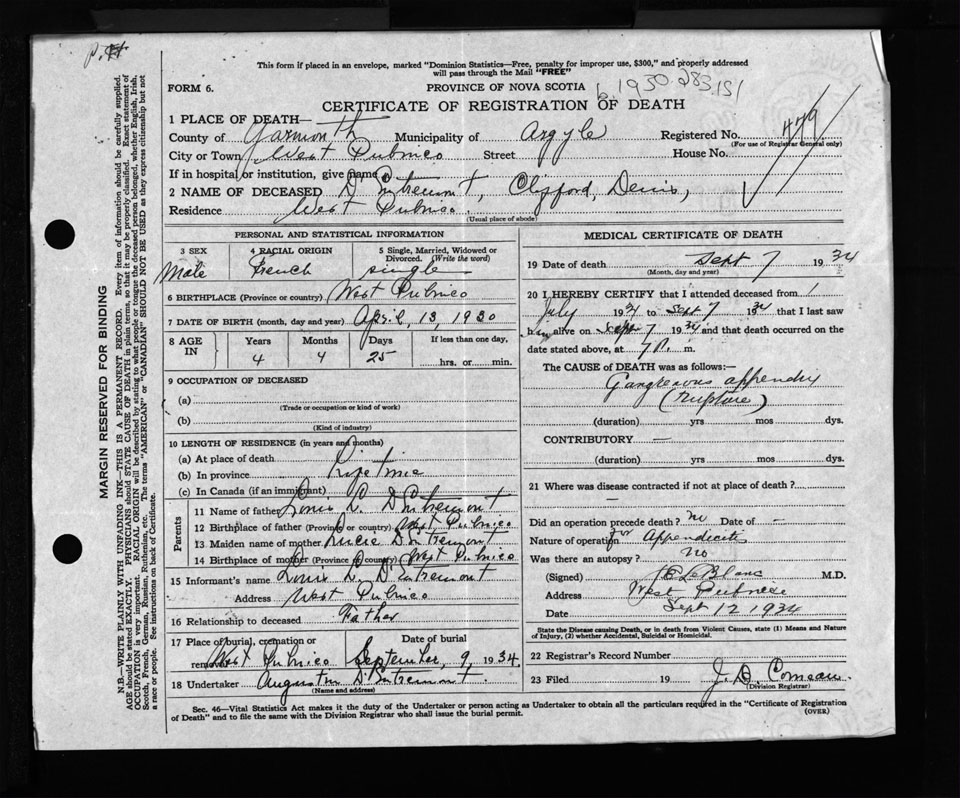 This form if placed in an envelope, marked "Dominion Statistics—Free, penalty for improper use, $300," and properly addressed
will pass through the Mail "FREE"
FORM 6. PROVINCE OF NOVA SCOTIA b. 1930. 283,151
CERTIFICATE OF REGISTRATION OF DEATH
1 PLACE OF DEATH—
County of Yarmouth Municipality of Argyle Registered No. 479
(For use of Registrar General only)
City or Town West Pubnico Street House No.
If in hospital or institution, give name
2 NAME OF DECEASED D'Entremont, Clifford, Denis,
Residence West Pubnico.
(Usual place of abode)
PERSONAL AND STATISTICAL INFORMATION
3 SEX 4 RACIAL ORIGIN 5 Single, Married, Widowed or
Divorced. (Write the word)
Male French single
6 BIRTHPLACE (Province or country) West Pubnico
7 DATE OF BIRTH (month, day and year) April, 13, 1930
8 AGE IN Years Months Days If less than one day,
4 4 25 hrs. or min.
9 OCCUPATION OF DECEASED
(a)
(Trade or occupation or kind of work)
(b)
(Kind of industry)
10 LENGTH OF RESIDENCE (in years and months)
(a) At place of death
(b) In province Life time
(c) In Canada (if an immigrant)
Parents
11 Name of father Louis L. D'Entremont
12 Birthplace of father (Province or country) West Pubnico
13 Maiden name of mother Lucie D'Entremont
14 Birthplace of mother (Province or country) West Pubnico
15 Informant's name Louis L. D'Entremont
Address West Pubnico
16 Relationship to deceased Father
17 Place of burial, cremation or Date of burial
removal West Pubnico September, 9, 1934.
18 Undertaker Augustin D'Entremont.
(Name and address)
MEDICAL CERTIFICATE OF DEATH
19 Date of death Sept 7 1934
(Month, day and year)
20 I HEREBY CERTIFY that I attended deceased from
July 1934 to Sept 7 1934 that I last saw
him alive on Sept 7 1934 and that death occurred on
the date stated above, at 7 P. m.
The CAUSE of DEATH was as follows:—
Gangrenous appendix
(rupture)
(duration) yrs mos dys.
CONTRIBUTORY —
(duration) yrs mos dys.
21 Where was disease contracted if not at place of death?
—
Did an operation precede death? no Date of —
Nature of operation for Appendicitis
Was there an autopsy? No
(Signed) LeBlanc M.D.
Address West Pubnico
Date Sept 12 1934
State the Disease causing Death, or in death from Violent Causes, state (1) Means and Nature
of Injury, (2) whether Accidental, Suicidal or Homicidal.
22 Registrar's Record Number
23 Filed 19 J. D. Comeau.
(Division Registrar)
Sec. 46—Vital Statistics Act makes it the duty of the Undertaker or person acting as Undertaker to obtain all the particulars required in the "Certificate of Registration
of Death" and to file the same with the Division Registrar who shall issue the burial permit. (OVER)
MARGIN RESERVED FOR BINDING
N.B.—WRITE PLAINLY WITH UNFADING INK—THIS IS A PERMANENT RECORD. Every item of information should be carefully supplied.
AGE should be stated EXACTLY. PHYSICIANS should STATE CAUSE OF DEATH in plain terms, so that it may be properly classified. Exact statement of
OCCUPATION is very important. RACIAL ORIGIN will be described by stating to what people or tongue the deceased person belonged, whether English, Irish,
Scotch, French, German, Russian, Ruthenian, etc. The terms "AMERICAN" or "CANADIAN" SHOULD NOT BE USED as they express citizenship but not
a race or people. See instructions on back of Certificate.